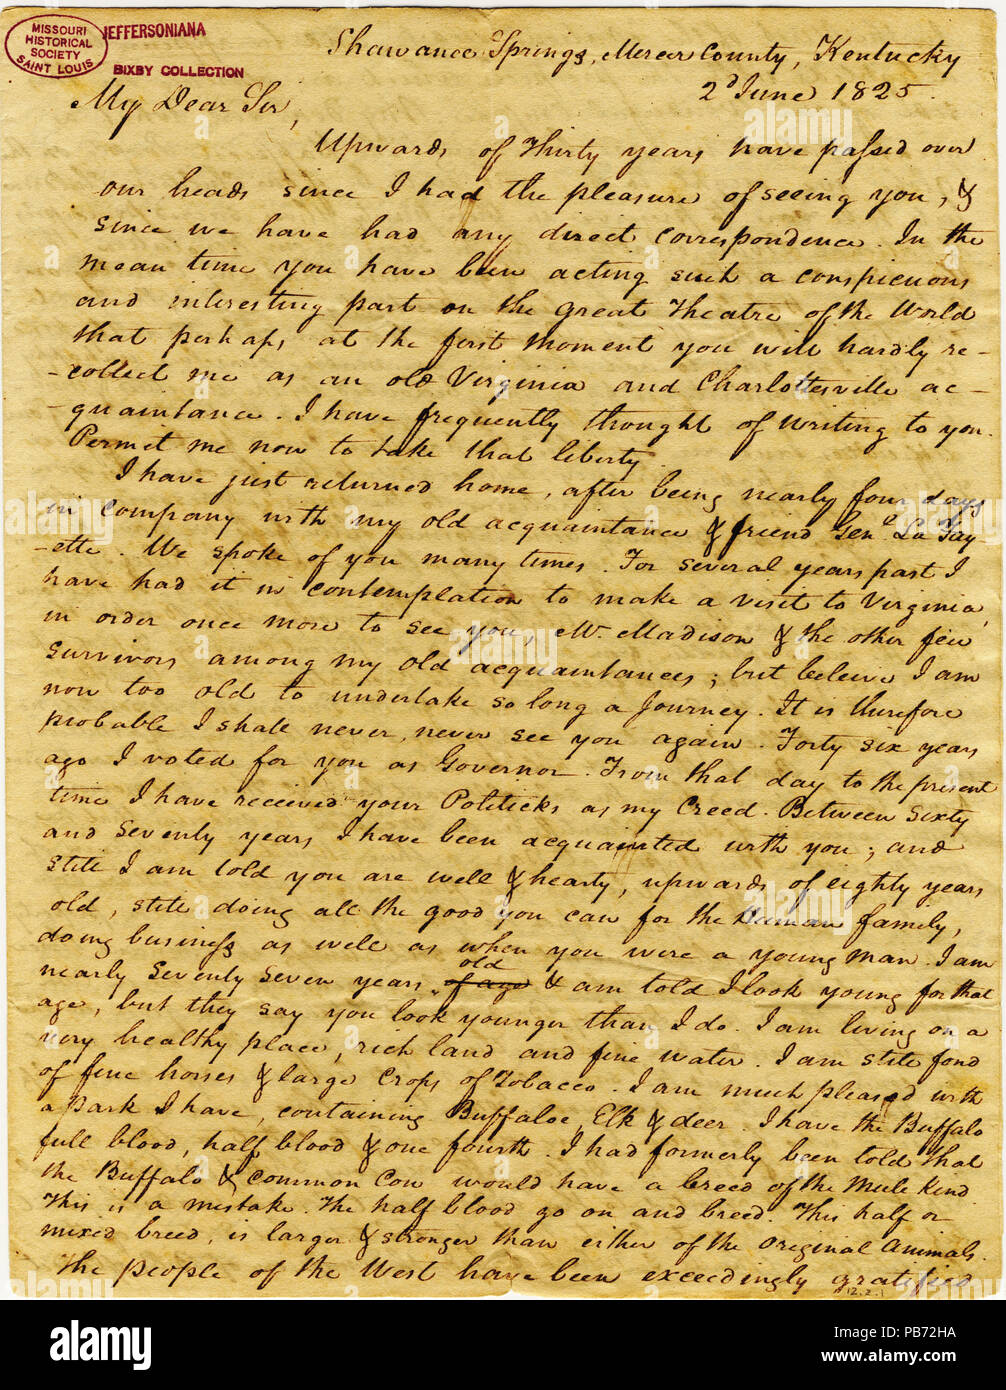 MISSOURI
HISTORICAL
SOCIETY
SAINT LOUIS
JEFFERSONIANA
BIXBY COLLECTION
Shawance Springs, Mercer County, Kentucky
2d June 1825.
My Dear Sir,
Upwards of Thirty years have passed over
our heads since I had the pleasure of seeing you, &
since we have had any direct correspondence. In the
mean time you have been acting such a conspicuous
and interesting part on the Great Theatre of the World
that perhaps, at the first moment you will hardly re-
-collect me as an old Virginia and Charlottesville ac-
-quaintance. I have frequently thought of writing to you.
Permit me now to take that liberty.
I have just returned home, after being nearly four days
in company with my old acquaintance & friend Genl La Fay
-ette. We spoke of you many times. For several years past I
have had it in contemplation to make a visit to Virginia,
in order once more to see you, Mr. Madison & the other few
survivors among my old acquaintances; but beleive I am
now too old to undertake so long a Journey. It is therefore
probable I shall never, never see you again. Forty six years
ago I voted for you as Governor. From that day to the present
time I have received your Politicks as my Creed. Between Sixty
and Seventy years I have been acquainted with you; and
still I am told you are well & hearty, upwards of eighty years
old, still doing all the good you can for the Human family,
doing business as well as when you were a young man. I am
nearly Seventy Seven years old of age & am told I look young for that
age, but they say you look younger than I do. I am living on a
very healthy place, rich land and fine water. I am still fond
of fine horses & large Crops of Tobacco. I am much pleased with
a park I have, containing Buffaloe, Elk & deer. I have the Buffalo
full blood, half blood & one fourth. I had formerly been told that
the Buffalo & common Cow would have a breed of the Mule kind.
This is a mistake. The half blood go on and breed. This half or
mixed breed, is larger & stronger than either of the original animals.
The people of the West have been exceedingly gratified
12.2.1
alamy
alamy
alamy
alamy
Image ID: PB72HA
www.alamy.com